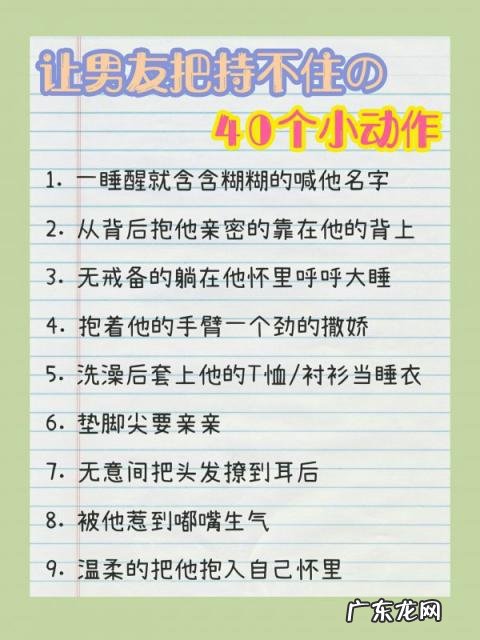 让男友把持不住の
40个小动作
1. 一睡醒就含含糊糊的喊他名字
2. 从背后抱他亲密的靠在他的背上
3. 无戒备的躺在他怀里呼呼大睡
4. 抱着他的手臂一个劲的撒娇
5. 洗澡后套上他的T恤/衬衫当睡衣
6. 垫脚尖要亲亲
7. 无意间把头发撩到耳后
8. 被他惹到嘟嘴生气
9. 温柔的把他抱入自己怀里
广东龙网